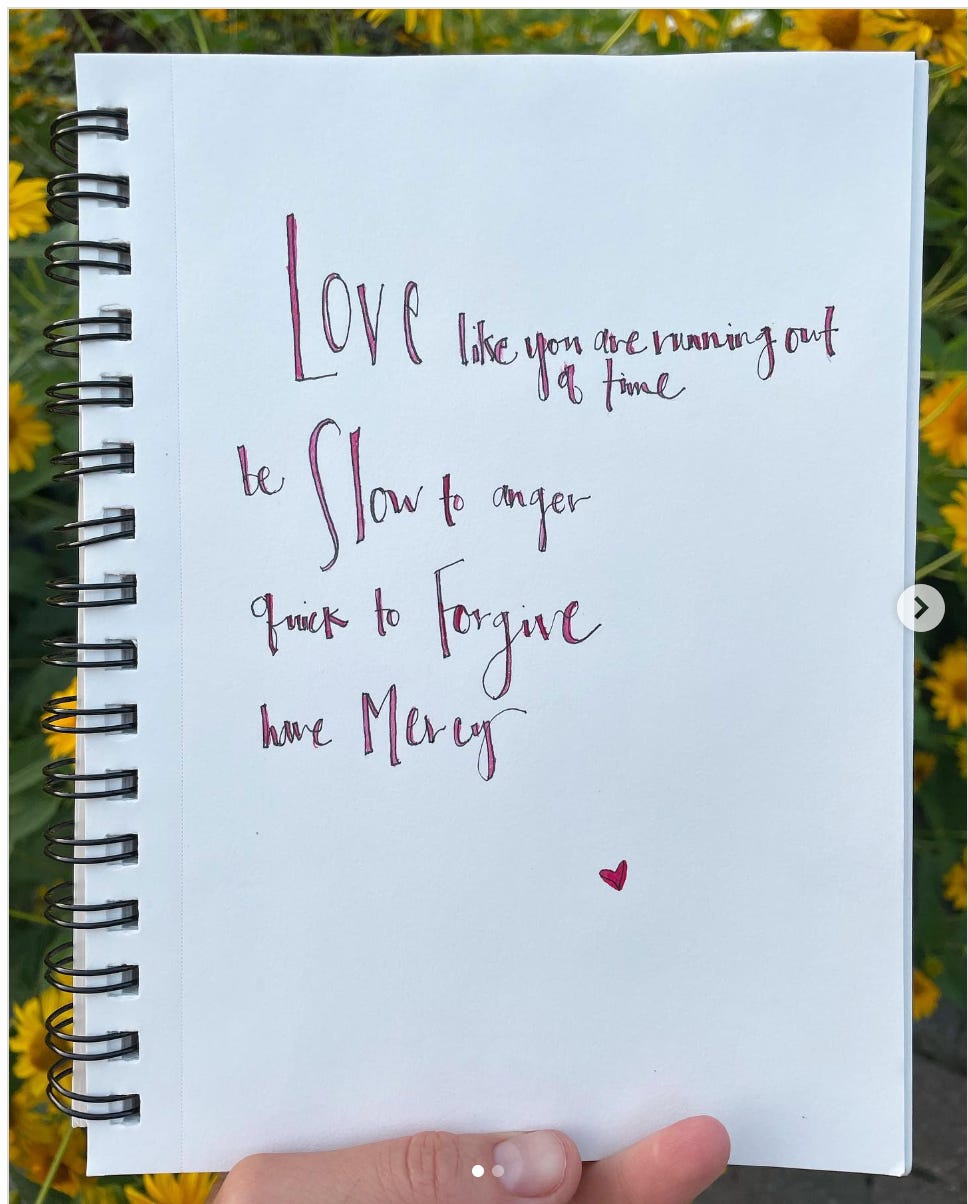 Love like you are running out
of time
be Slow to anger
quick to Forgive
have Mercy